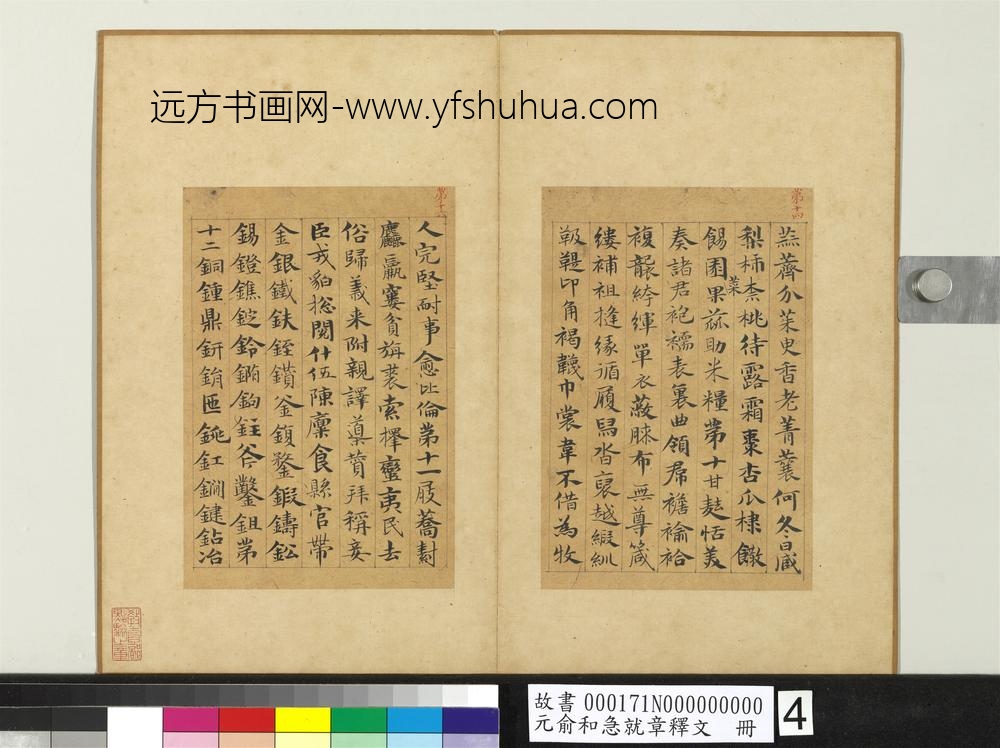 远方书画网-www.yfshuhua.com
第十四
蕪薺芥茱臾香老菁蘘何冬日藏
梨柿柰桃待露霜棗杏瓜棣饊
餳園菜果蓏助米糧第十甘麩恬美
奏諸君袍襦表裏曲領帬襜褕袷
複襲絝緷單衣蔽膝布無尊箴
縷補袒縫緣循履舄沓裒越緞紃
靸鞮卬角褐韤巾裳韋不借為牧
人完堅耐事愈比倫第十一屐蕎
麤羸窶貧旃裘索擇蠻夷民去
俗歸義來附親譯導贊拜稱妾
臣戎貊總閱什伍陳廩食縣官帶
金銀鐵鈇銍鑽釜鍑鍪鍛鑄鈆
錫鐙鐎錠鈴鉤斧鑿鉏第
十二銅鍾鼎鈃鋗匜銚釭鐧鍵鉆冶
故書 000171N000000000
元俞和急就章釋文 冊
4